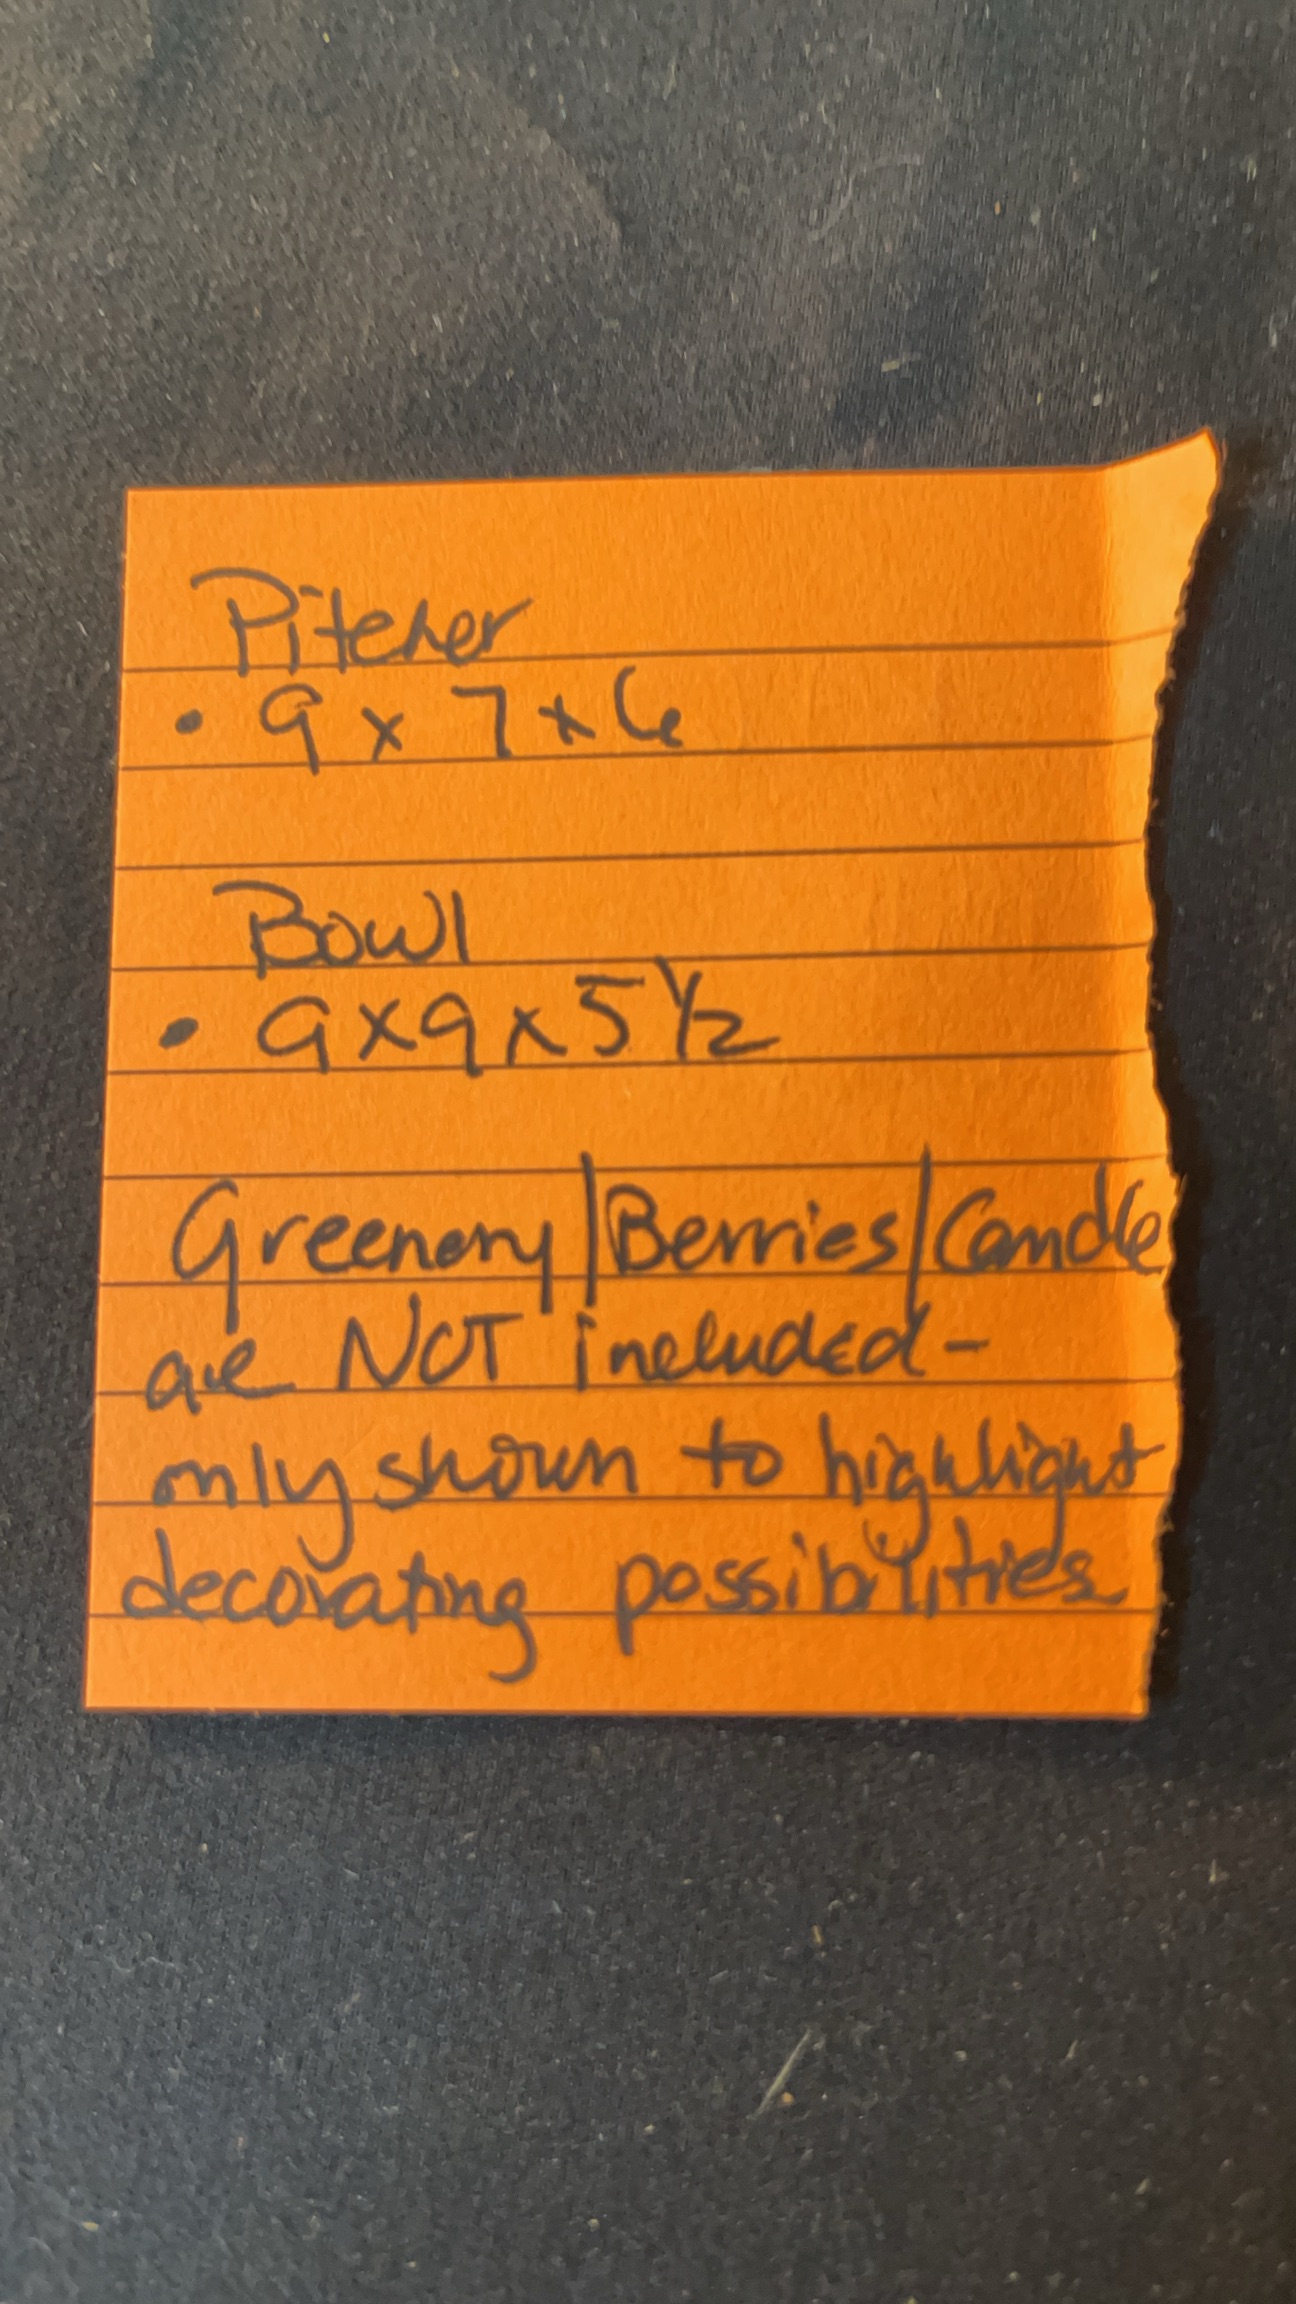 Pitcher
• 9 x 7 x 6
Bowl
• 9x9x5 1/2
Greenery/Berries/Candle
are NOT included -
only shown to highlight
decorating possibilities